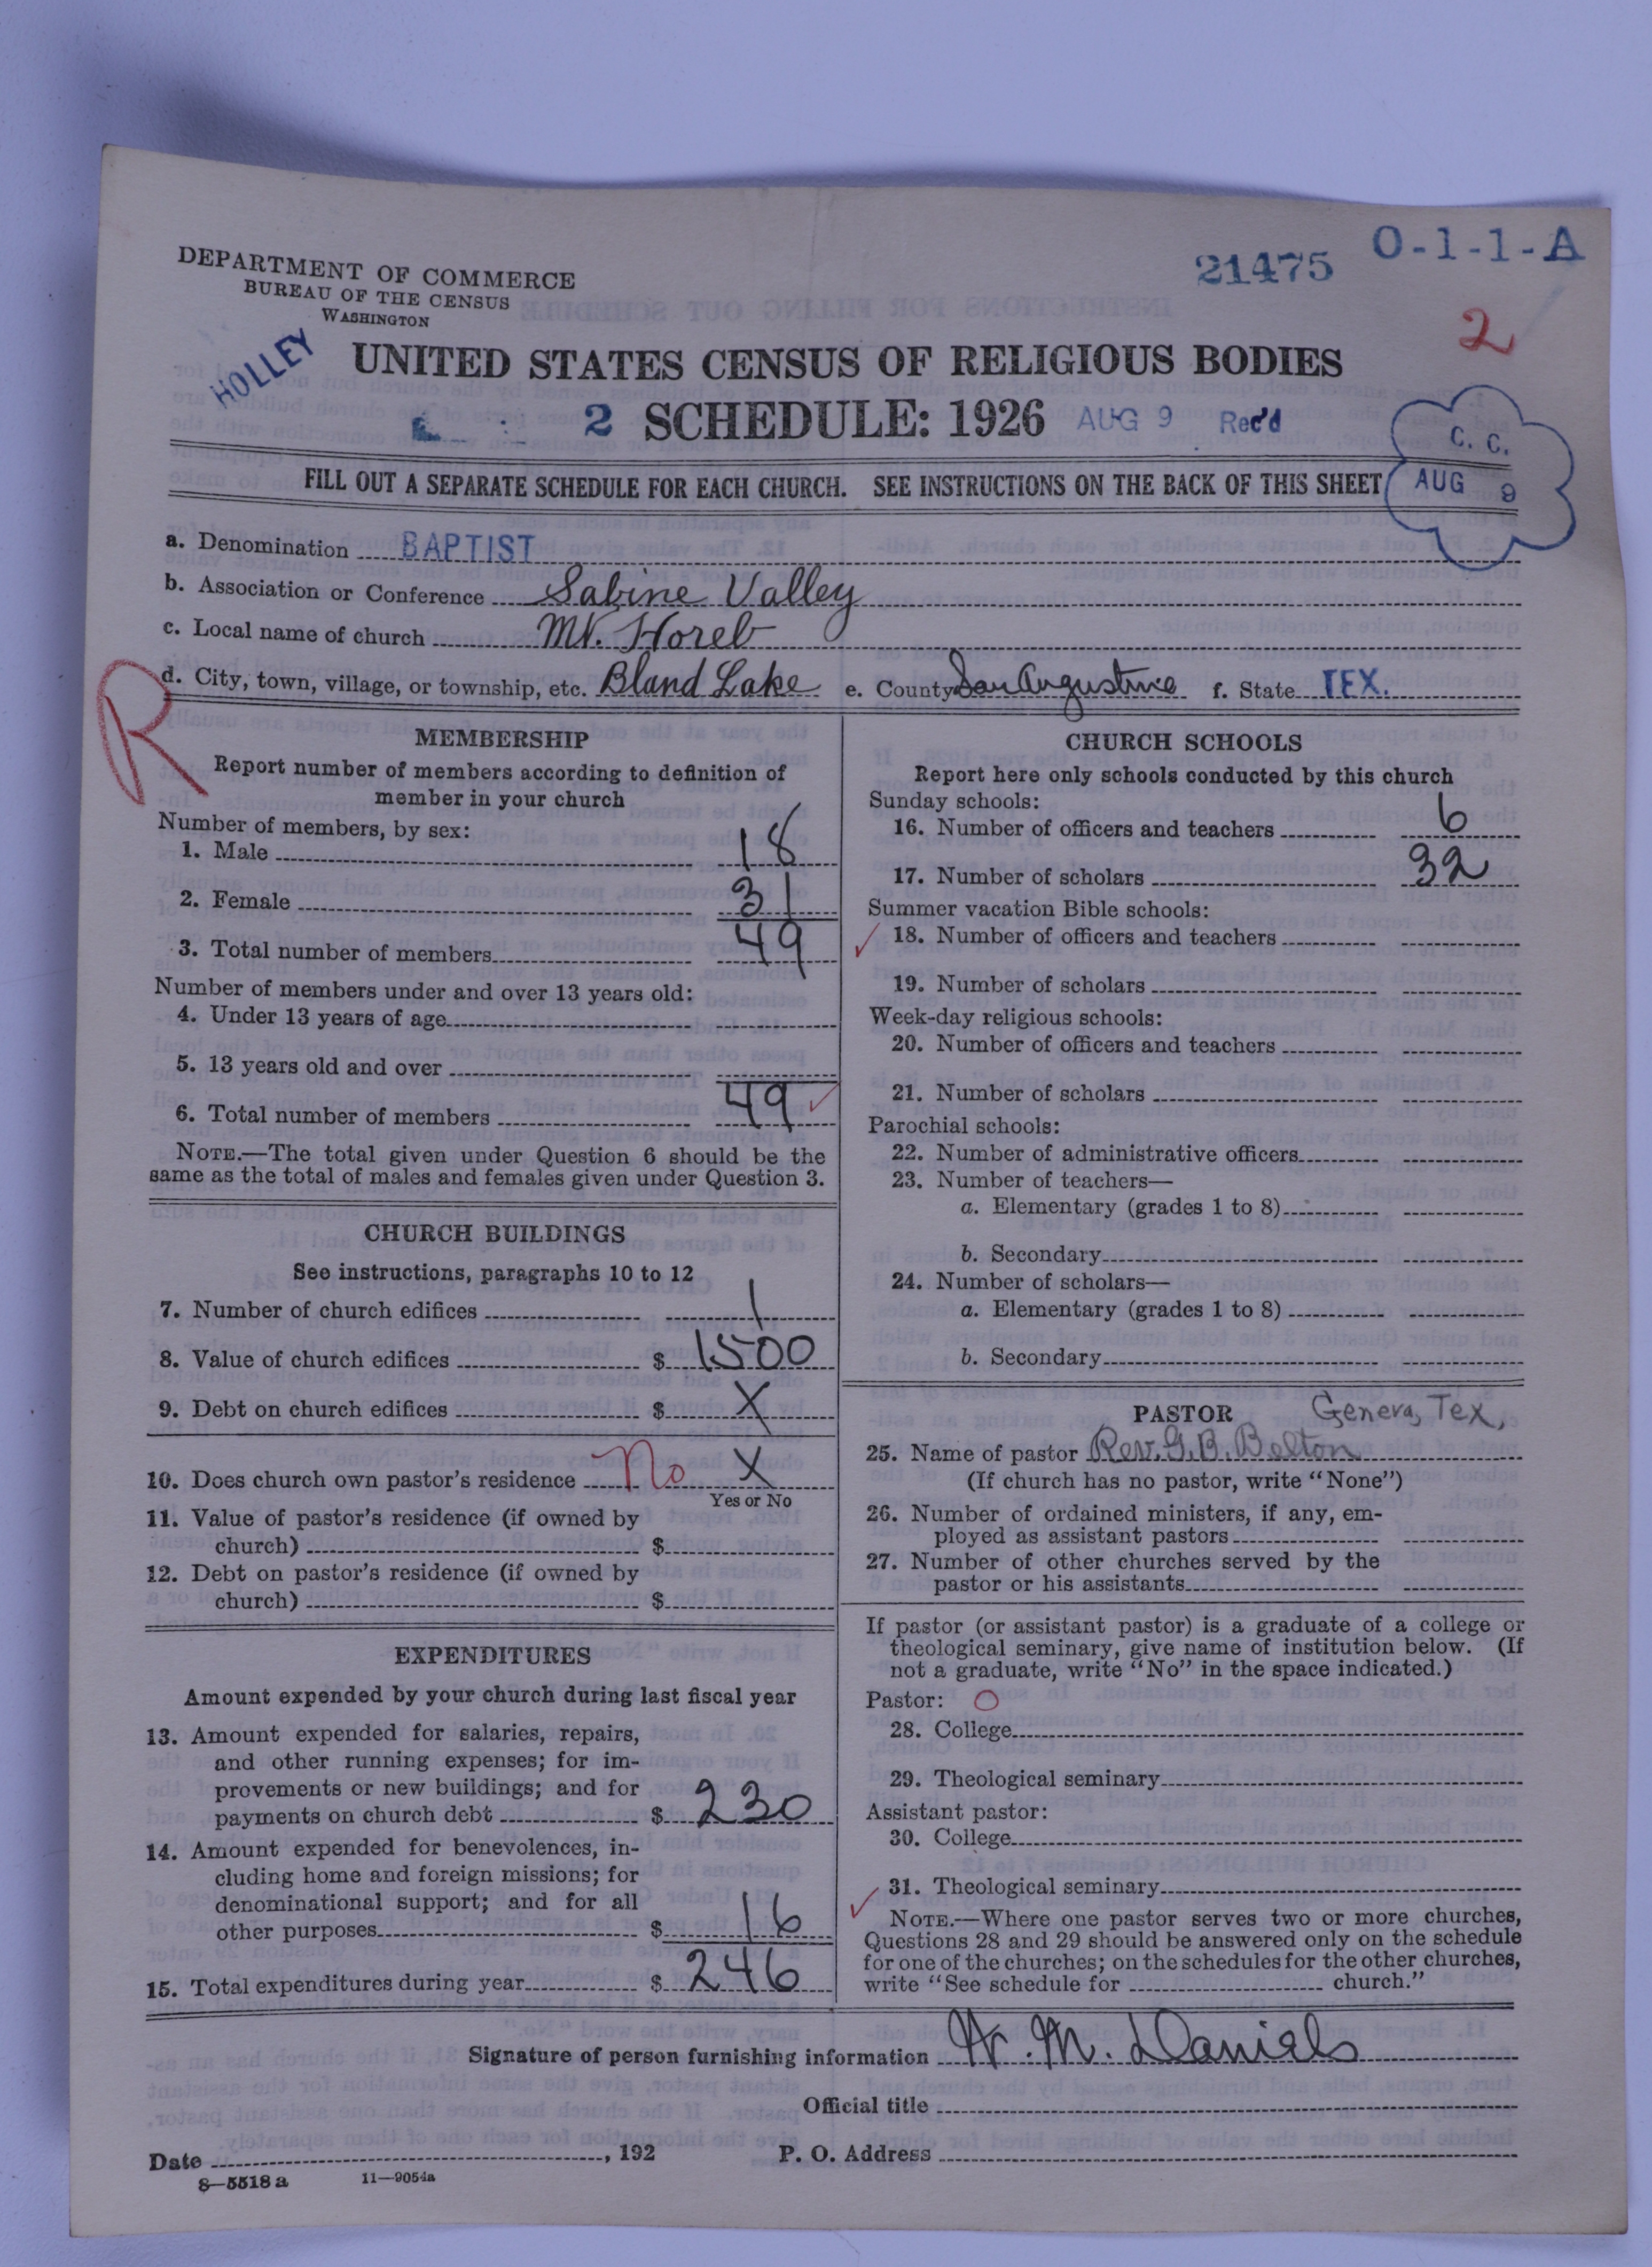 DEPARTMENT OF COMMERCE
BUREAU OF THE CENSUS
WASHINGTON
21475
O-1-1-A
2
HOLLEY
UNITED STATES CENSUS OF RELIGIOUS BODIES
2 SCHEDULE: 1926 AUG 9 Rec'd
C. C.
AUG 9
FILL OUT A SEPARATE SCHEDULE FOR EACH CHURCH. SEE INSTRUCTIONS ON THE BACK OF THIS SHEET
a. Denomination BAPTIST
b. Association or Conference Sabine Valley
c. Local name of church Mt. Horeb
d. City, town, village, or township, etc. Bland Lake e. County San Augustine f. State TEX.
R
MEMBERSHIP
Report number of members according to definition of
member in your church
Number of members, by sex:
1. Male 18
2. Female 31
3. Total number of members 49
Number of members under and over 13 years old:
4. Under 13 years of age
5. 13 years old and over
6. Total number of members 49
NOTE.—The total given under Question 6 should be the
same as the total of males and females given under Question 3.
CHURCH BUILDINGS
See instructions, paragraphs 10 to 12
7. Number of church edifices 1
8. Value of church edifices $ 1500
9. Debt on church edifices $ X
10. Does church own pastor's residence No X
Yes or No
11. Value of pastor's residence (if owned by
church) $
12. Debt on pastor's residence (if owned by
church) $
EXPENDITURES
Amount expended by your church during last fiscal year
13. Amount expended for salaries, repairs,
and other running expenses; for im-
provements or new buildings; and for
payments on church debt $ 230
14. Amount expended for benevolences, in-
cluding home and foreign missions; for
denominational support; and for all
other purposes $ 16
15. Total expenditures during year $ 246
CHURCH SCHOOLS
Report here only schools conducted by this church
Sunday schools:
16. Number of officers and teachers 6
17. Number of scholars 32
Summer vacation Bible schools:
18. Number of officers and teachers
19. Number of scholars
Week-day religious schools:
20. Number of officers and teachers
21. Number of scholars
Parochial schools:
22. Number of administrative officers
23. Number of teachers—
a. Elementary (grades 1 to 8)
b. Secondary
24. Number of scholars—
a. Elementary (grades 1 to 8)
b. Secondary
PASTOR Geneva, Tex,
25. Name of pastor Rev. G. B. Belton
(If church has no pastor, write "None")
26. Number of ordained ministers, if any, em-
ployed as assistant pastors
27. Number of other churches served by the
pastor or his assistants
If pastor (or assistant pastor) is a graduate of a college or
theological seminary, give name of institution below. (If
not a graduate, write "No" in the space indicated.)
Pastor: O
28. College
29. Theological seminary
Assistant pastor:
30. College
31. Theological seminary
NOTE.—Where one pastor serves two or more churches,
Questions 28 and 29 should be answered only on the schedule
for one of the churches; on the schedules for the other churches,
write "See schedule for church."
Signature of person furnishing information W. M. Daniels
Official title
Date , 192 P. O. Address
8—5518 a 11—9054a